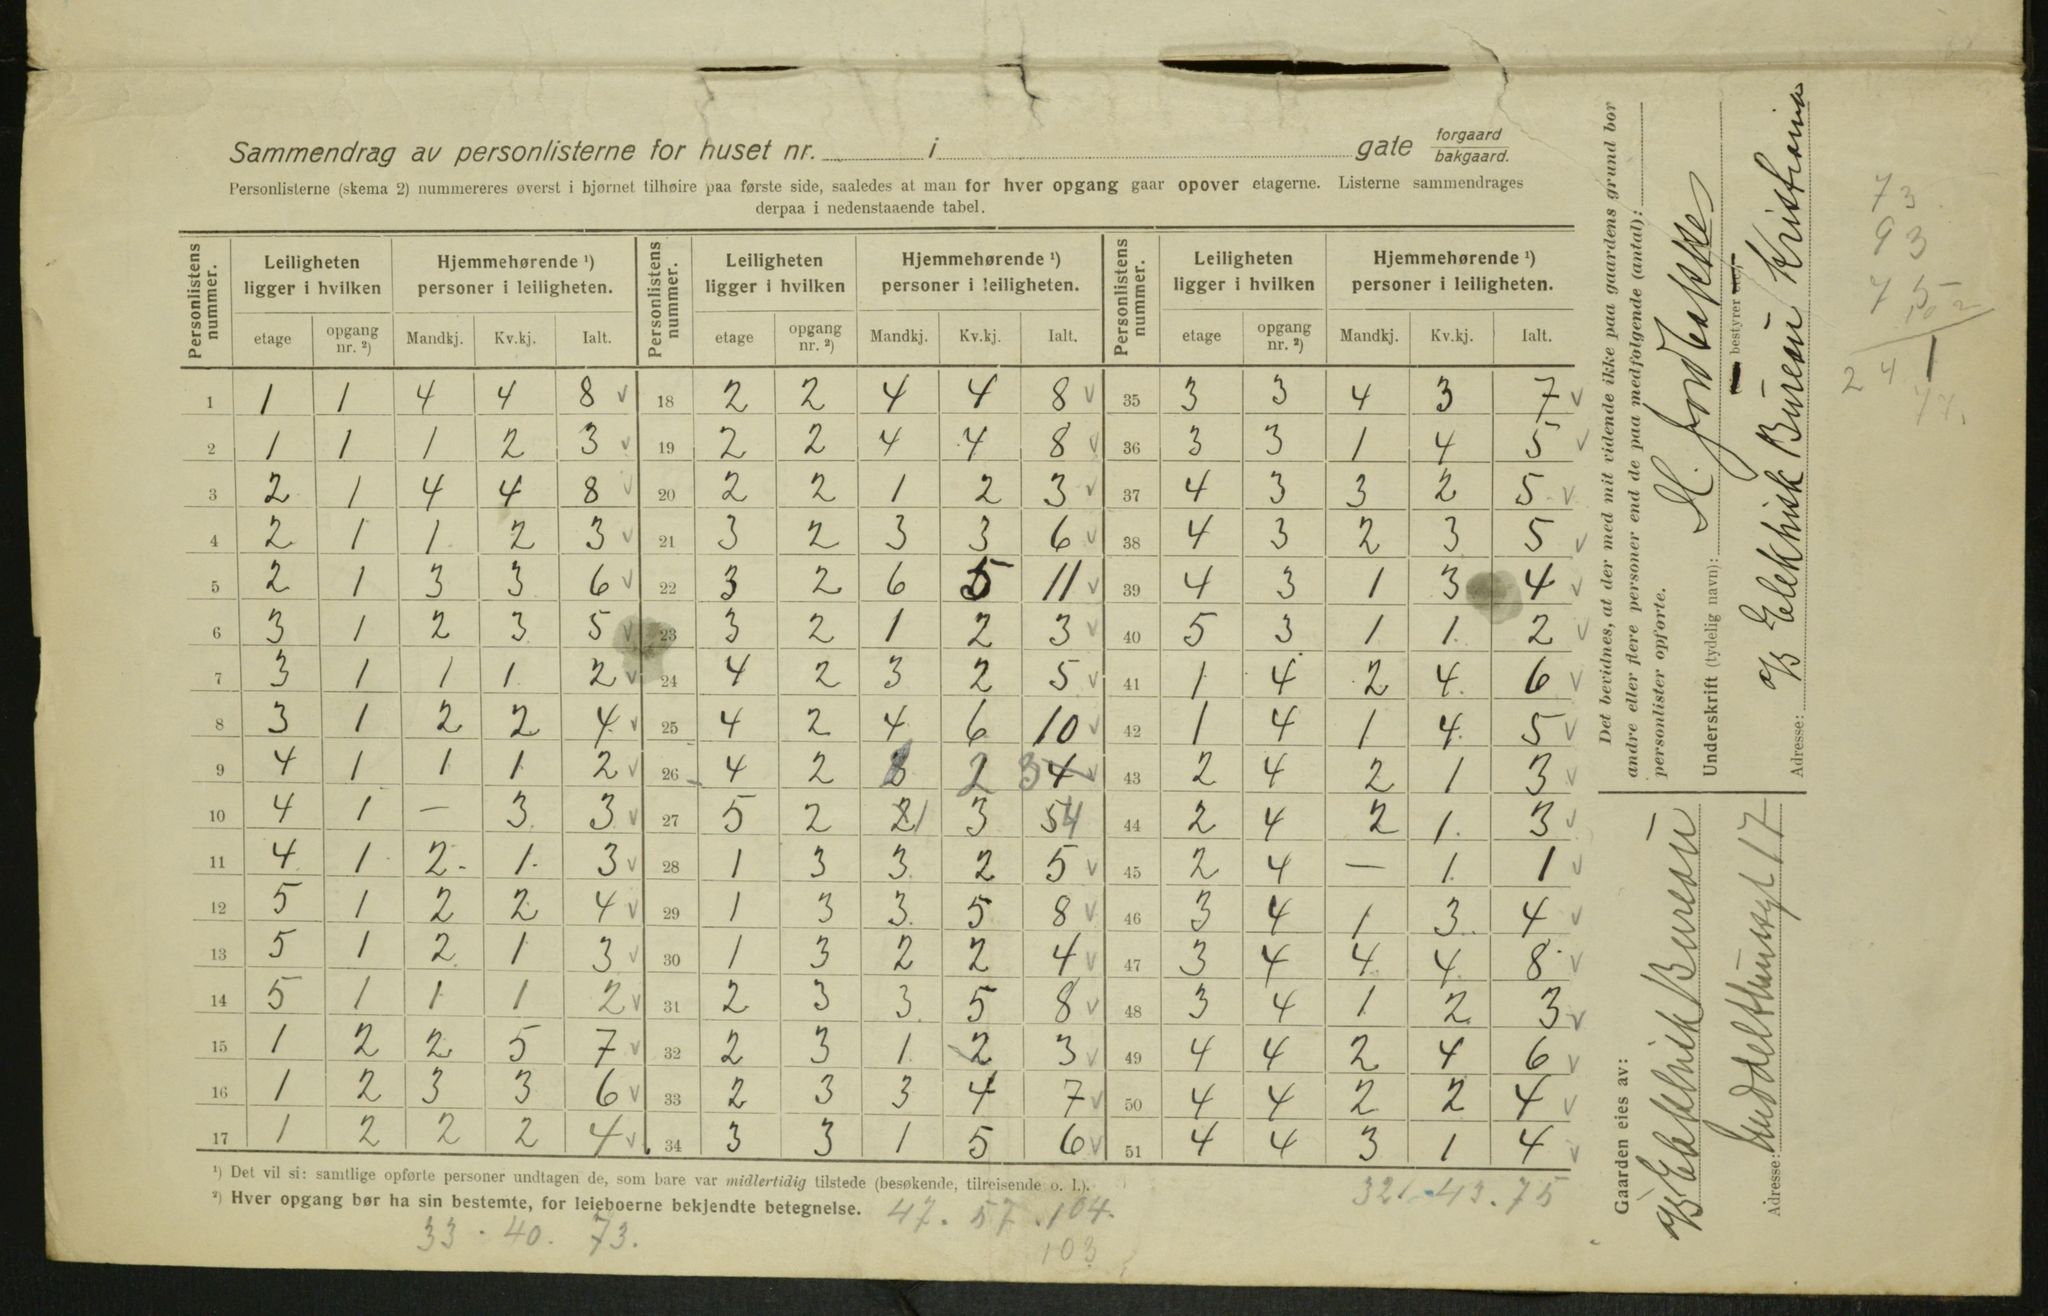 Sammendrag av personlisterne for huset nr. i gate forgaard bakgaard.
Personlisterne (skema 2) nummereres øverst i hjørnet tilhøire paa første side, saaledes at man for hver opgang gaar opover etagerne. Listerne sammendrages
derpaa i nedenstaaende tabel.
Personlistens nummer. Leiligheten ligger i hvilken Hjemmehørende ¹) personer i leiligheten. Personlistens nummer. Leiligheten ligger i hvilken Hjemmehørende ¹) personer i leiligheten. Personlistens nummer. Leiligheten ligger i hvilken Hjemmehørende ¹) personer i leiligheten.
etage opgang nr. ²) Mandkj. Kv.kj. Ialt. etage opgang nr. ²) Mandkj. Kv.kj. Ialt. etage opgang nr. ²) Mandkj. Kv.kj. Ialt.
1 1 1 4 4 8 v 18 2 2 4 4 8 v 35 3 3 4 3 7 v
2 1 1 1 2 3 v 19 2 2 4 4 8 v 36 3 3 1 4 5 v
3 2 1 4 4 8 v 20 2 2 1 2 3 v 37 4 3 3 2 5 v
4 2 1 1 2 3 v 21 3 2 3 3 6 v 38 4 3 2 3 5 v
5 2 1 3 3 6 v 22 3 2 6 5 11 v 39 4 3 1 3 4 v
6 3 1 2 3 5 v 23 3 2 1 2 3 v 40 5 3 1 1 2 v
7 3 1 1 1 2 v 24 4 2 3 2 5 v 41 1 4 2 4 6 v
8 3 1 2 2 4 v 25 4 2 4 6 10 v 42 1 4 1 4 5 v
9 4 1 1 1 2 v 26 4 2 2 3 4 v 43 2 4 2 1 3 v
10 4 1 — 3 3 v 27 5 2 2 1 3 5 4 44 2 4 2 1 3 v
11 4 1 2 1 3 v 28 1 3 3 2 5 v 45 2 4 — 1 1 v
12 5 1 2 2 4 v 29 1 3 3 5 8 v 46 3 4 1 3 4 v
13 5 1 2 1 3 v 30 1 3 2 2 4 v 47 3 4 4 4 8 v
14 5 1 1 1 2 v 31 2 3 3 5 8 v 48 3 4 1 2 3 v
15 1 2 2 5 7 v 32 2 3 1 2 3 v 49 4 4 2 4 6 v
16 1 2 3 3 6 v 33 2 3 3 4 7 v 50 4 4 2 2 4 v
17 1 2 2 2 4 v 34 3 3 1 5 6 v 51 4 4 3 1 4 v
¹) Det vil si: samtlige opførte personer undtagen de, som bare var midlertidig tilstede (besøkende, tilreisende o. l.).
²) Hver opgang bør ha sin bestemte, for leieboerne bekjendte betegnelse.
33 . 40. 73.
47. 57. 104.
103
32 - 43. 75
Det bevidnes, at der med mit vidende ikke paa gaardens grund bor
andre eller flere personer end de paa medfølgende (antal):
personlister opførte.
Underskrift (tydelig navn):
bestyrer
Adresse: Elektrisk Bureau Kristiania
Gaarden eies av:
Elektrisk Bureau
Adresse: Middelthunsgt 17
73
93
75
102
241